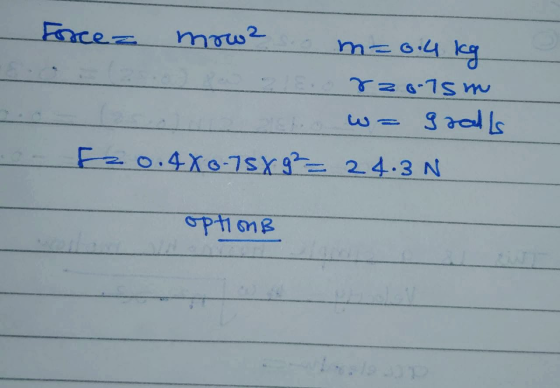 Force = mrω² m = 0.4 kg
r = 0.75 m
ω = 9 rad/s
F = 0.4 × 0.75 × 9² = 24.3 N
option B